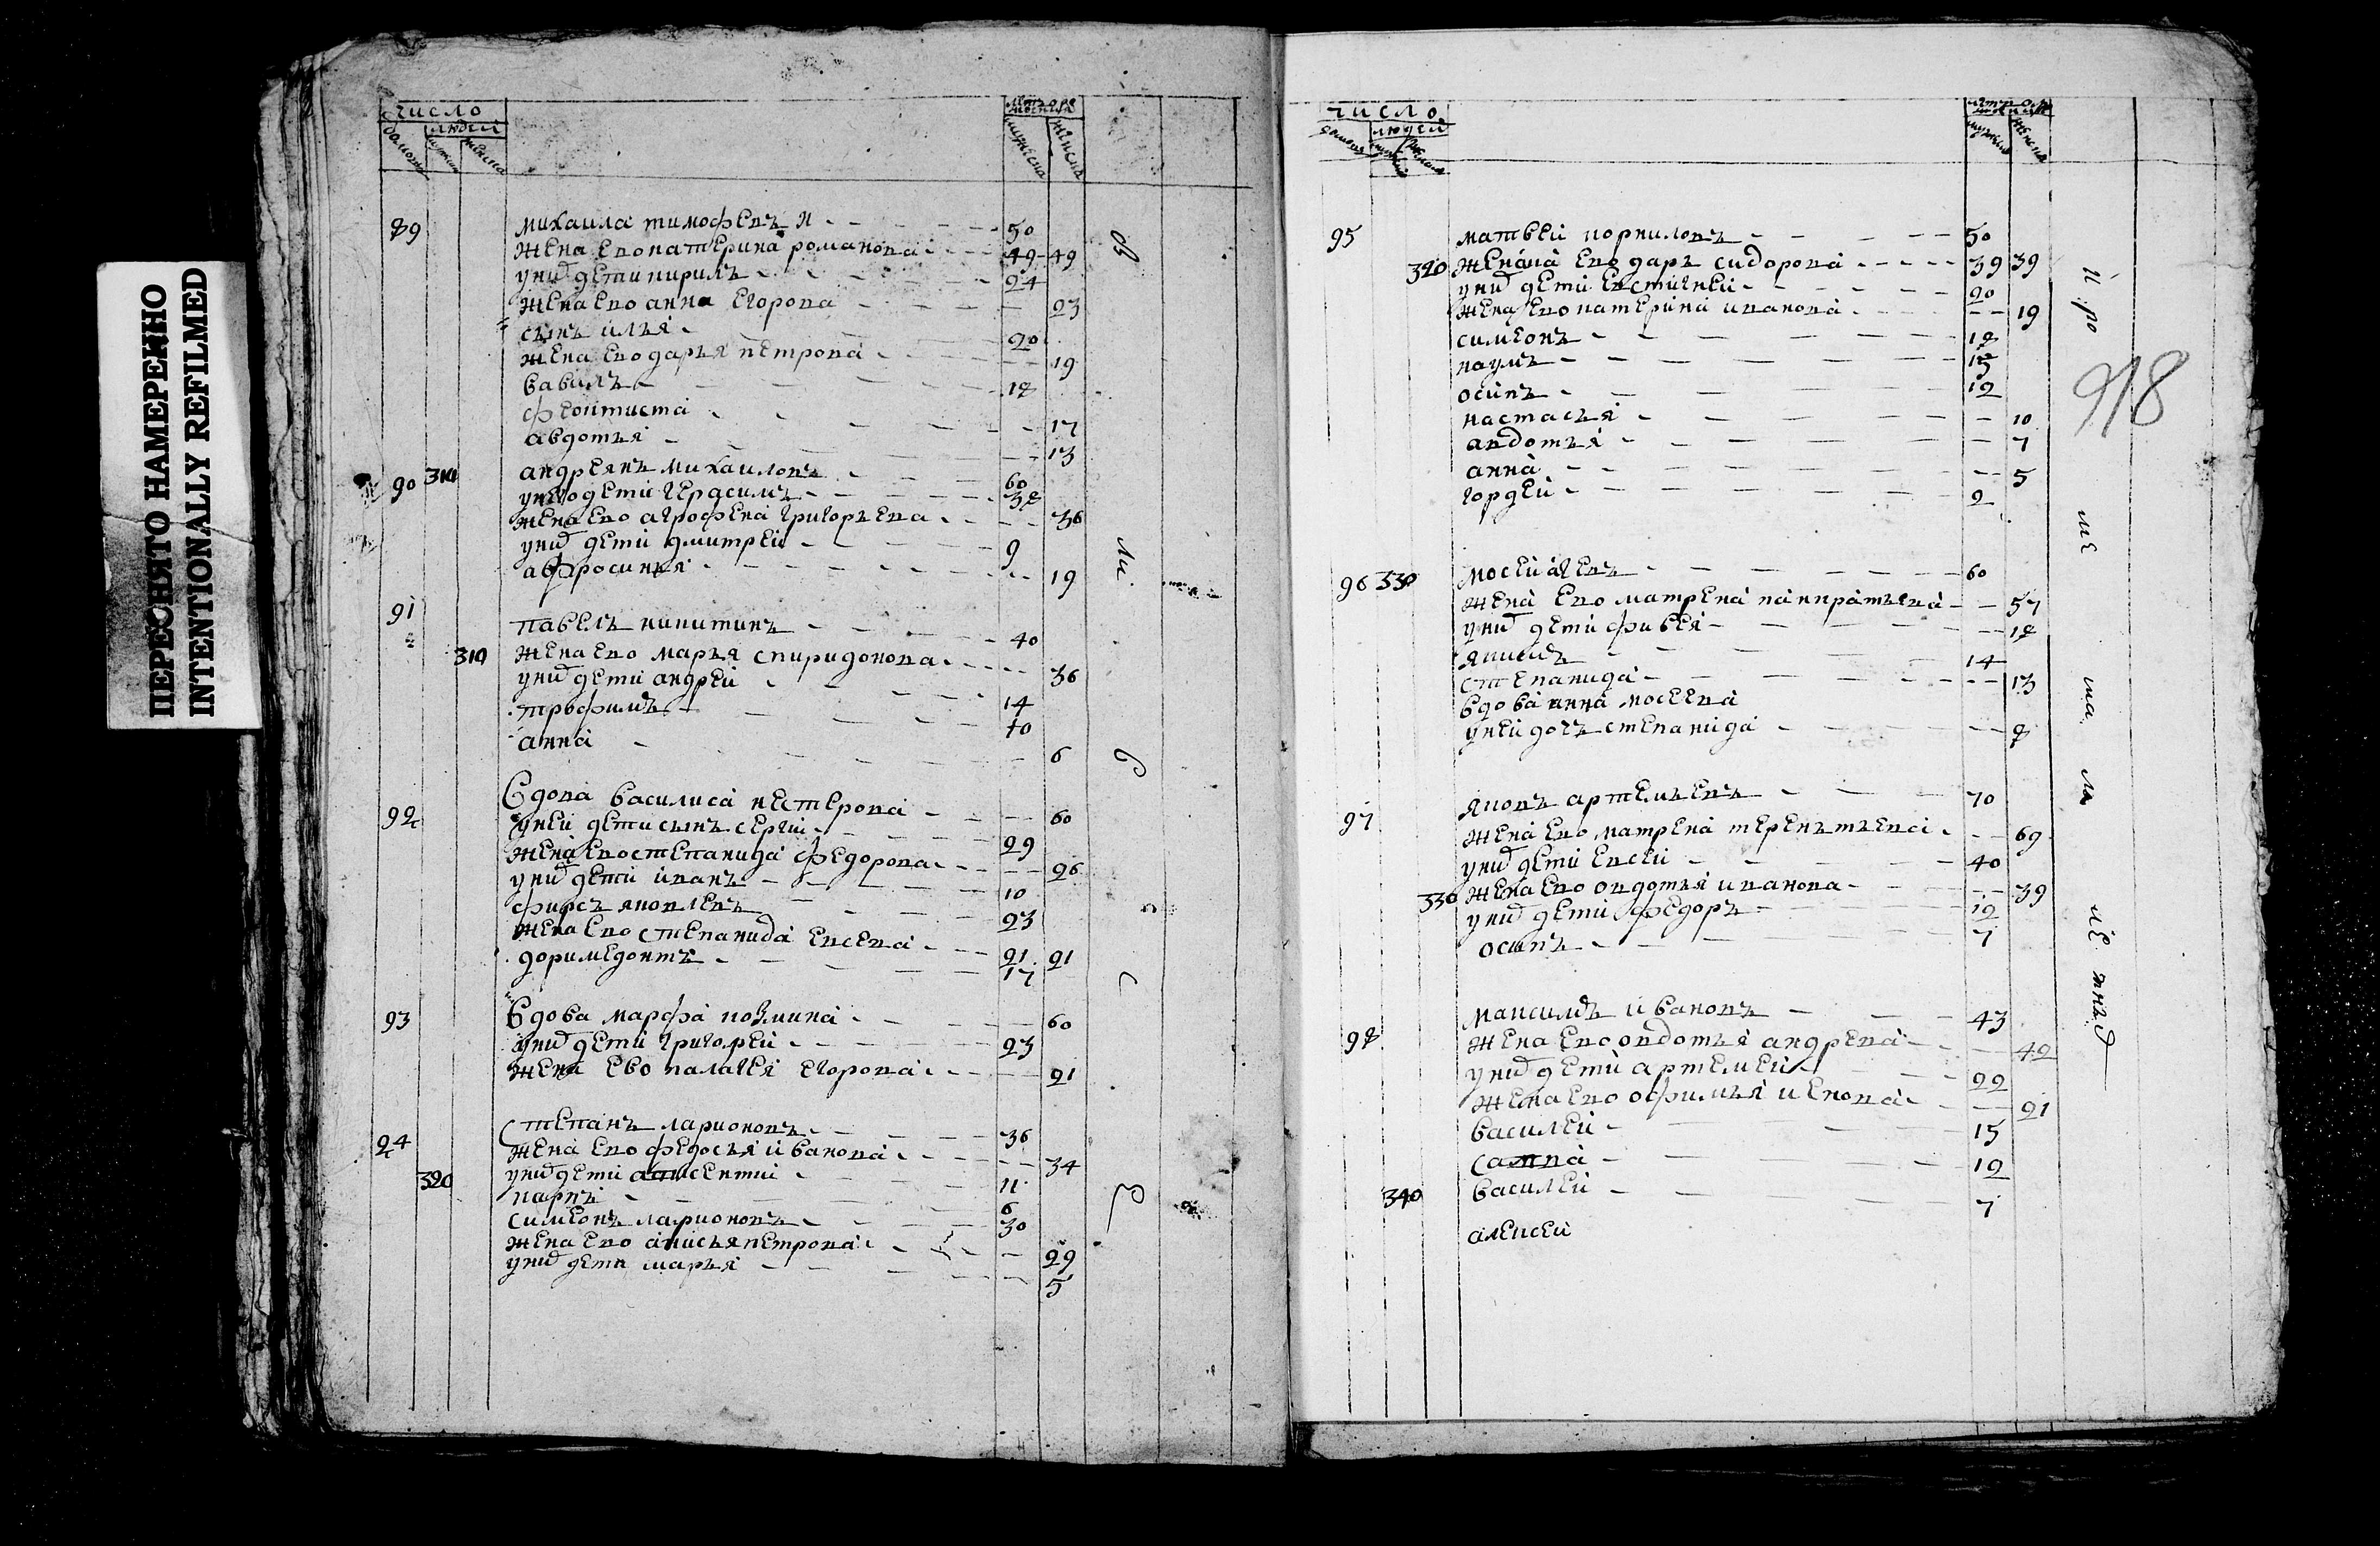 ПЕРЕСНЯТО НАМЕРЕННО
INTENTIONALLY REFILMED
число
людей
89 михаила тимофевъ 50
жена ево катерина романова 49 49
унихъ дети кирилъ 24
жена ево анна егорова 23
сынъ илья 20
жена ево дарья петрова 19
вавилъ 18
феоктиста 17
авдотья 13
90 310 андреянъ михаиловъ 60
унево дети герасимъ 38
жена ево агрофена григорьева 36
унихъ дети дмитреи 9
афросинья 19
91 павелъ никитинъ 40
310 жена ево марья спиридонова 36
унихъ дети андреи 14
трофимъ 10
анна 6
92 вдова василиса нестерова 60
унеи дети сынъ сергии 29
жена ево степанида федорова 26
унихъ дети иванъ 10
фирсъ яковлевъ 23
жена ево степанида евсева 21 21
доримедонтъ 17
93 вдова марфа козмина 60
унихъ дети григореи 23
жена ево палагея егорова 21
94 степанъ ларионовъ 36
жена ево федосья иванова 34
320 унихъ дети авксентии 11
карпъ 6
симеонъ ларионовъ 30
жена ево анисья петрова 29
унихъ дети марья 5
В
ли
б
с
число
людей
95 матвеи корниловъ 50
320 жена ево дарья сидорова 39 39
унихъ дети евстигнеи 20
жена ево катерина иванова 19
симеонъ 18
наумъ 15
осипъ 12
настасья 10
авдотья 7
анна 5
гордеи 2
96 330 мосеи агевъ 60
жена ево матрена панкратьева 57
унихъ дети фивея 18
якимъ 14
степанида 13
вдова анна мосеева
унеи дочь степанида 8
97 яковъ артемьевъ 70
жена ево матрена терентьева 69
унихъ дети евсеи 40
330 жена ево овдотья иванова 39
унихъ дети федоръ 12
осипъ 7
98 максимъ ивановъ 43
жена ево овдотья андрева 42
унихъ дети артемеи 22
жена ево офимья 21
василеи 15
савва 12
340 василеи 7
алексеи
918